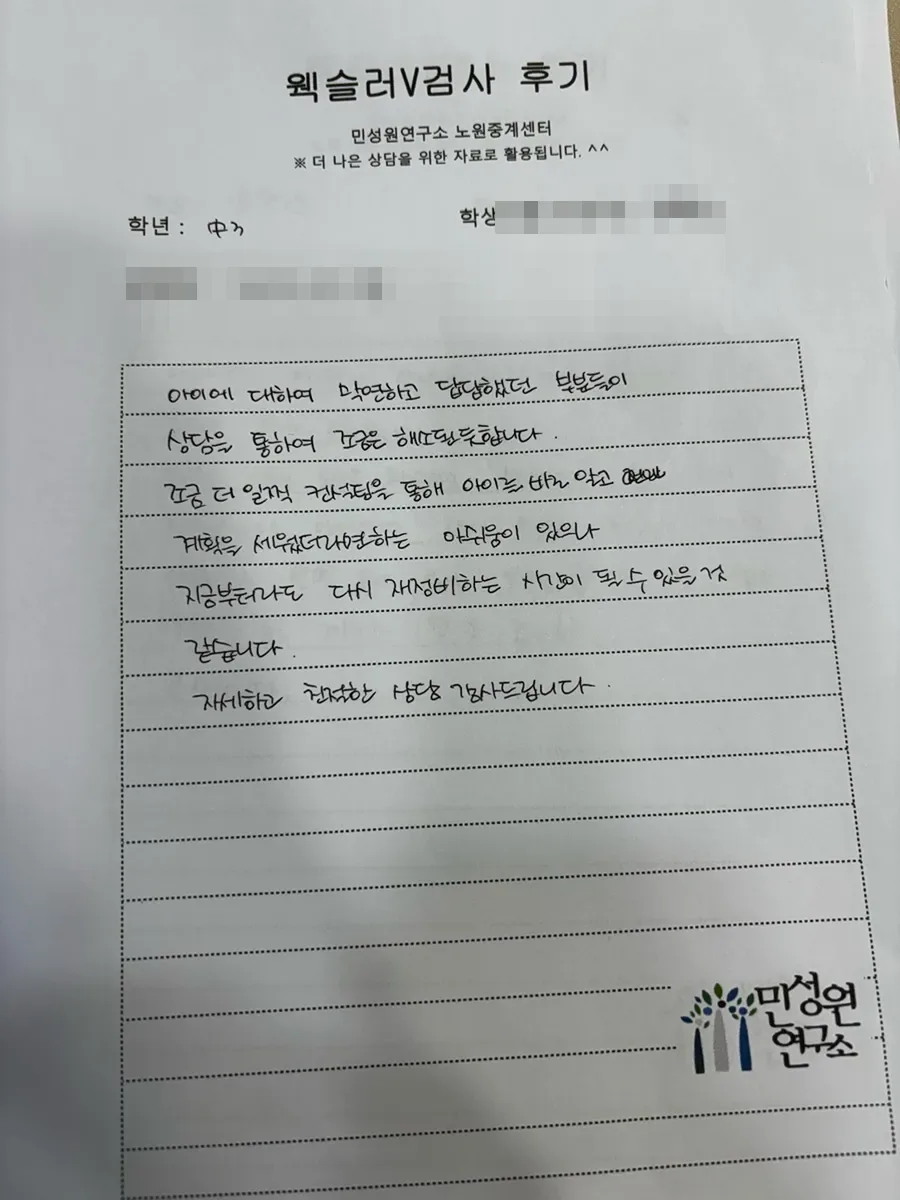 웩슬러V검사 후기
민성원연구소 노원중계센터
※ 더 나은 상담을 위한 자료로 활용됩니다. ^^
학년 : 中3
학생
아이에 대하여 막연하고 답답했던 부분들이
상담을 통하여 조금은 해소된듯합니다.
조금 더 일찍 컨설팅을 통해 아이를 바로 알고
계획을 세웠더라면하는 아쉬움이 있으나
지금부터라도 다시 재정비하는 시간이 될 수 있을 것
같습니다.
자세하고 친절한 상담 감사드립니다.
민성원
연구소